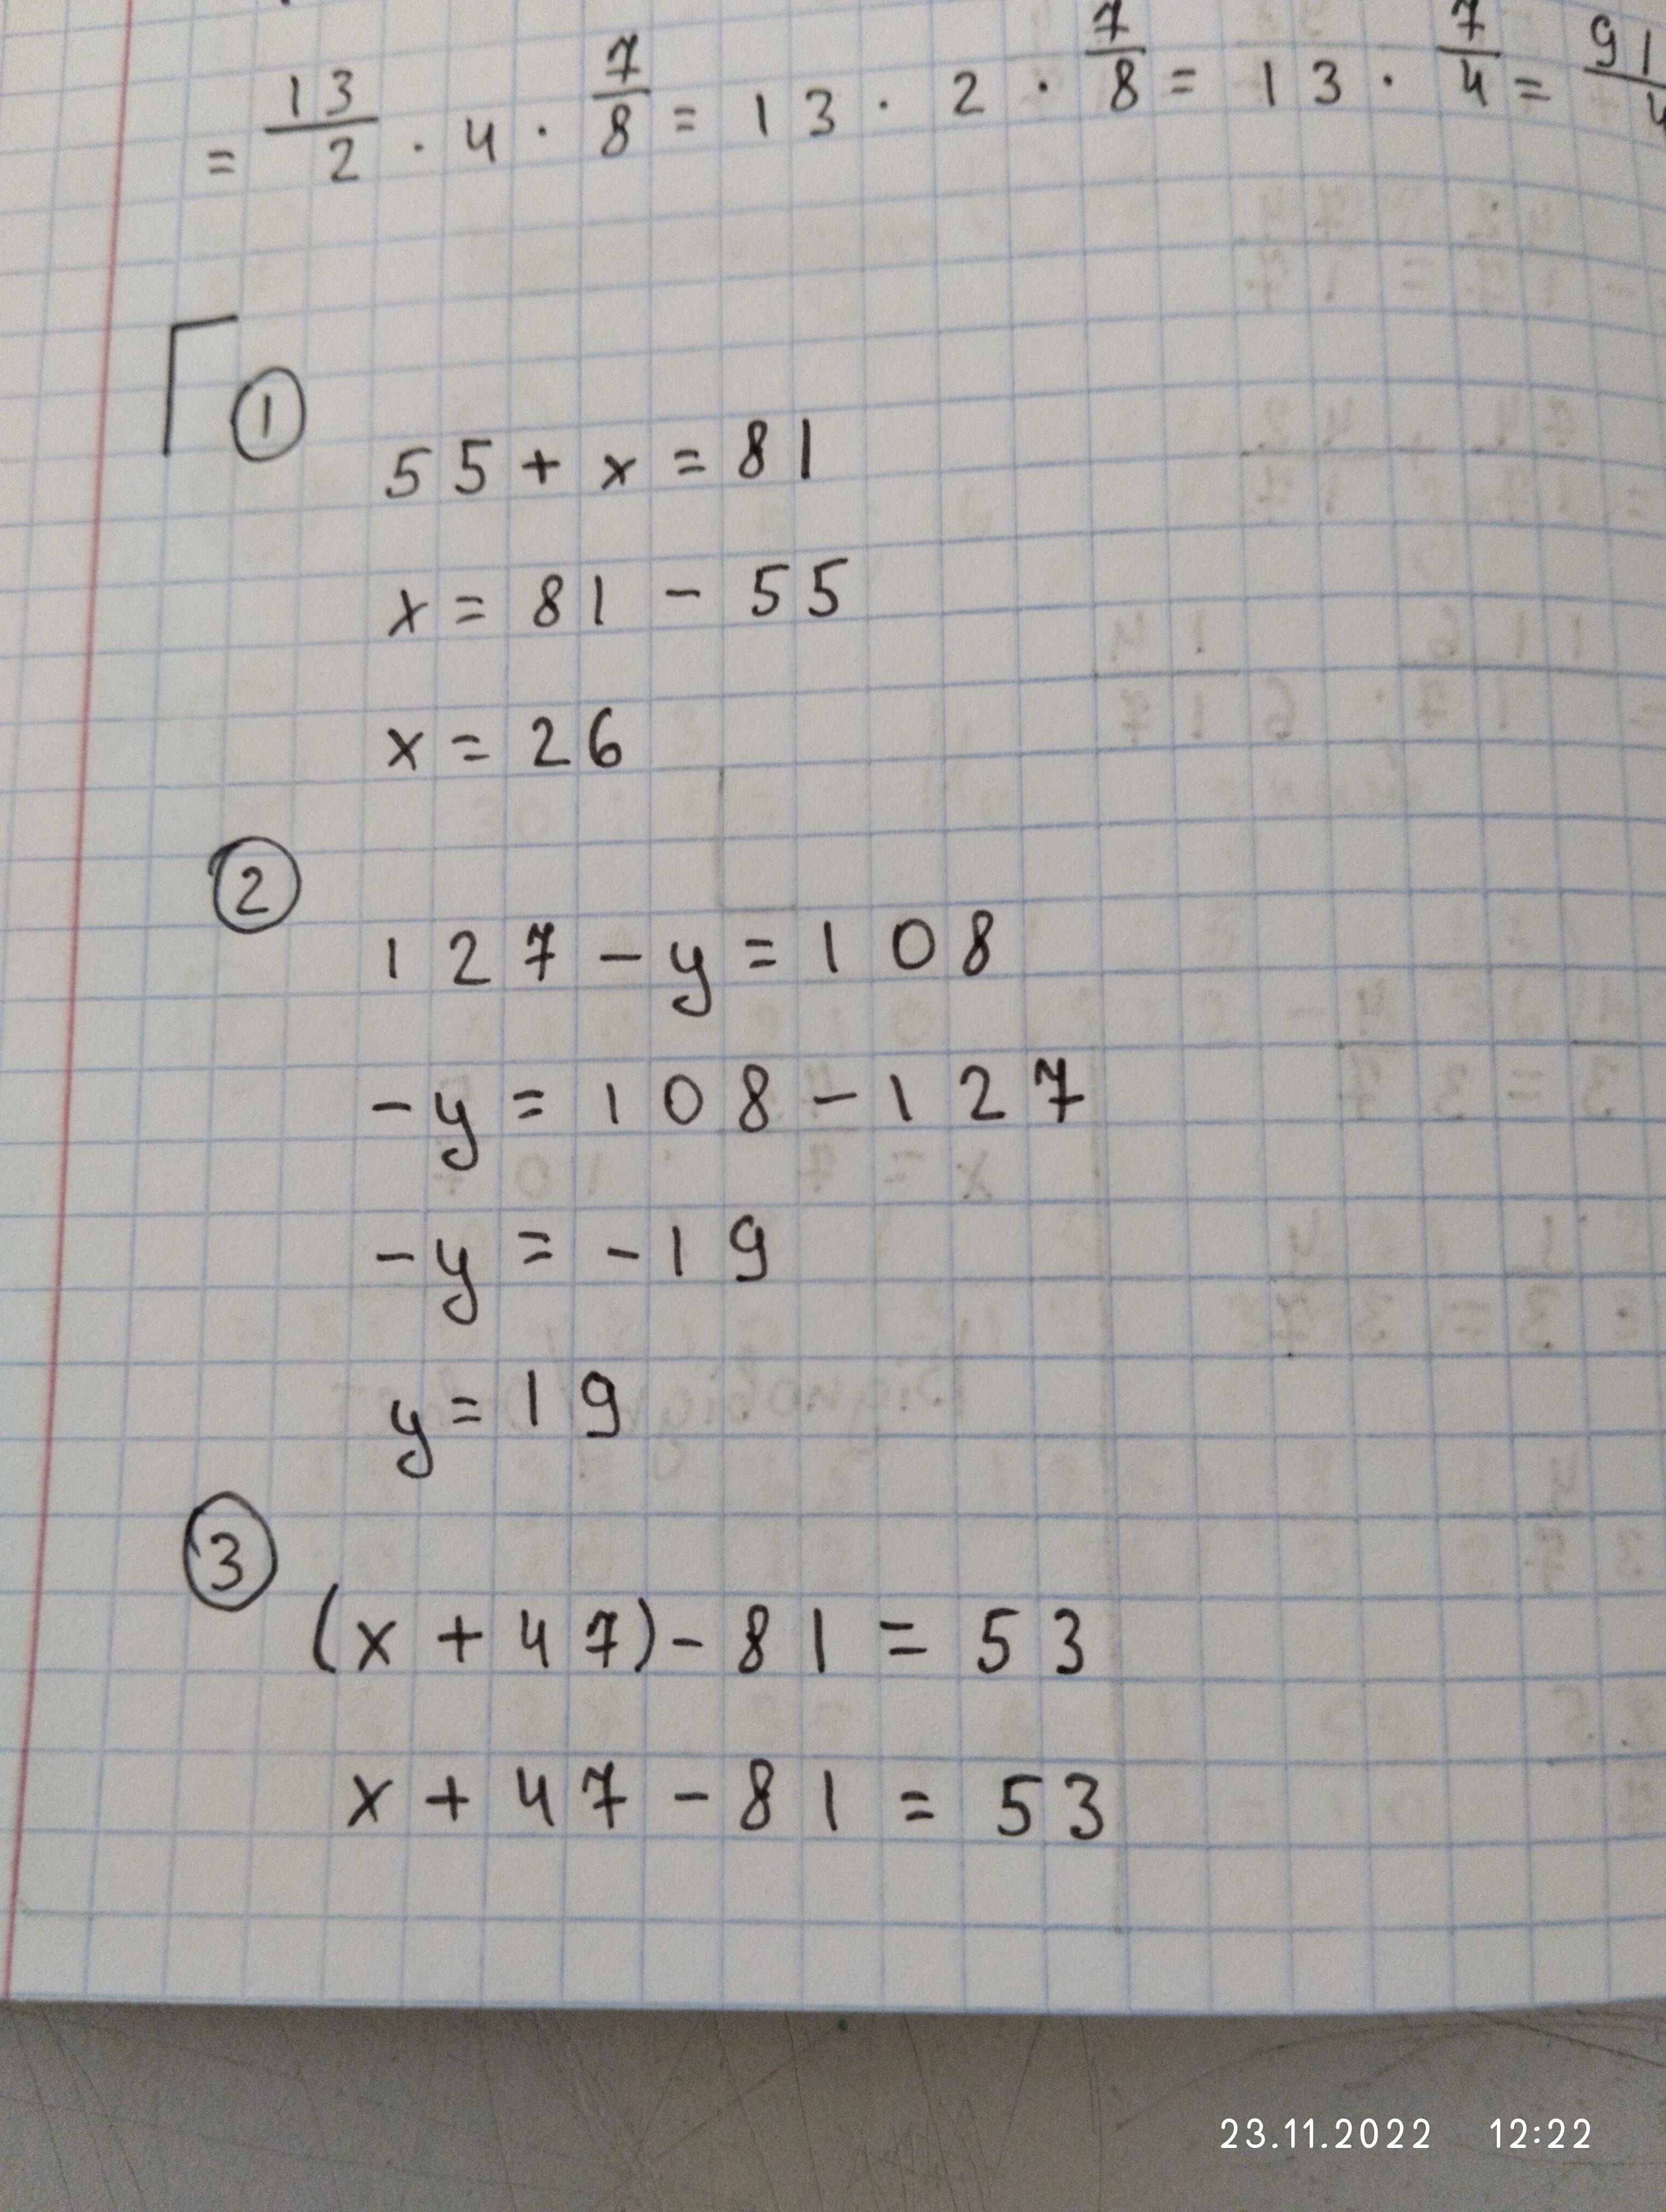 = 13/2 · 4 · 7/8 = 13 · 2 · 7/8 = 13 · 7/4 = 91/4
1
55 + x = 81
x = 81 - 55
x = 26
2
127 - y = 108
-y = 108 - 127
-y = -19
y = 19
3
(x + 47) - 81 = 53
x + 47 - 81 = 53
23.11.2022 12:22